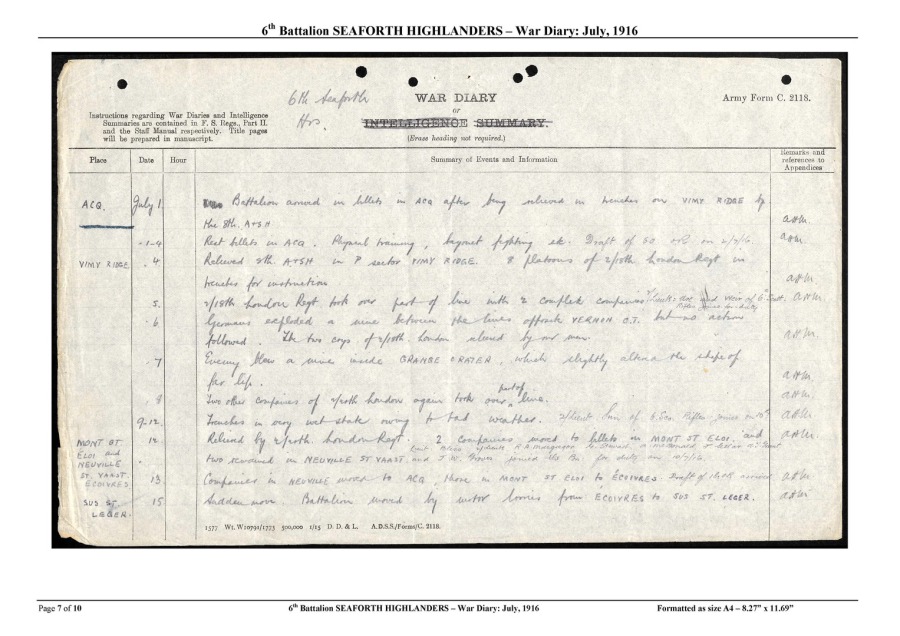 6th Battalion SEAFORTH HIGHLANDERS – War Diary: July, 1916
6th Seaforth
Hrs.
WAR DIARY
or
INTELLIGENCE SUMMARY.
(Erase heading not required.)
Army Form C. 2118.
Instructions regarding War Diaries and Intelligence
Summaries are contained in F. S. Regs., Part II.
and the Staff Manual respectively. Title pages
will be prepared in manuscript.
Place Date Hour Summary of Events and Information Remarks and references to Appendices
ACQ. July 1. Battalion arrived in billets in ACQ after being relieved in trenches on VIMY RIDGE by
the 8th. A&SH
-1-4 Rest billets in ACQ. Physical training, bayonet fighting etc. Draft of 50 on
VIMY RIDGE . 4 Relieved 8th. A&SH in P sector VIMY RIDGE. 8 platoons of London Regt in
trenches for instruction
5. London Regt took over part of line with 2 complete companies
. 6 Germans exploded a mine between the lines opposite VERNON C.T. but no action
followed. The two coys of London relieved by our men.
. 7 Enemy blew a mine inside GRANGE CRATER, which slightly altered the shape of
far lip.
. 8 Two other companies of London again took over part of line.
9-12. Trenches in very wet state owing to bad weather.
MONT ST ELOI and NEUVILLE ST. VAAST. 12 Relieved by London Regt. 2 companies moved to billets in MONT ST ELOI, and
two remained in NEUVILLE ST VAAST joined the Bn. for duty on
ECOIVRES . 13 Companies in NEUVILLE moved to ACQ, those in MONT ST ELOI to ECOIVRES. Draft of
SUS ST. LEGER. 15 Sudden move. Battalion moved by motor lorries from ECOIVRES to SUS ST. LEGER.
1577 Wt. W10791/1773 500,000 1/15 D. D. & L. A.D.S.S./Forms/C. 2118.
Page 7 of 10 6th Battalion SEAFORTH HIGHLANDERS – War Diary: July, 1916 Formatted as size A4 – 8.27" x 11.69"